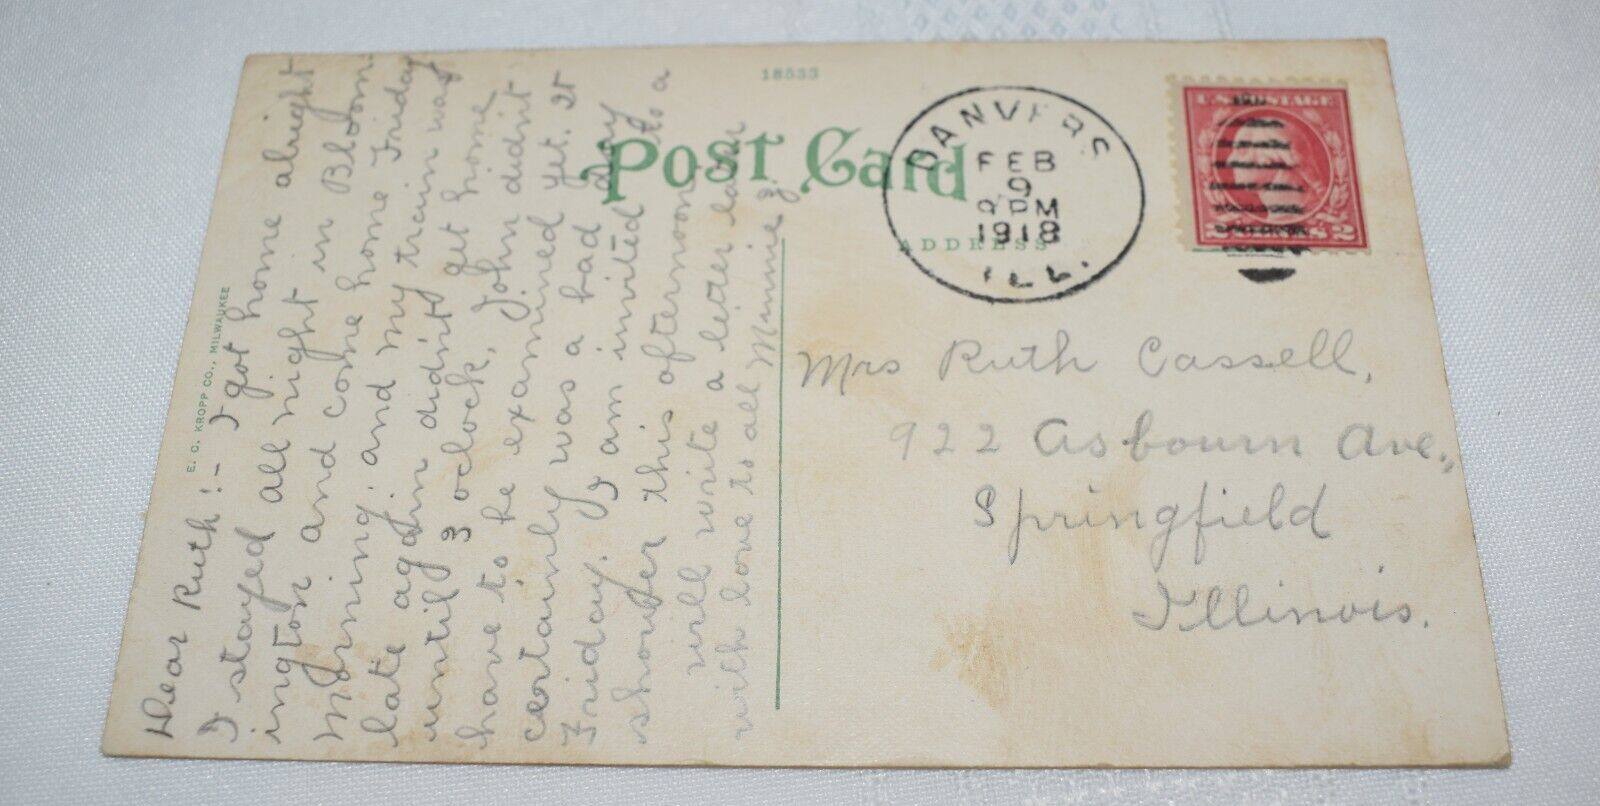 18533
Post Card
ADDRESS
DANVERS
FEB
9
PM
1918
ILL.
U.S. POSTAGE
2 CENTS 2
E. C. KROPP CO., MILWAUKEE
Dear Ruth:- I got home alright
I stayed all night in Bloom-
ington and come home Friday
Morning. and my train was
late again didn't get home
until 3 oclock, John didn't
have to be examined yet. It
certainly was a bad day
Friday. I am invited to a
shower this afternoon
will write a letter later
with love to all Minnie Z.
Mrs Ruth Cassell,
922 Asbourn Ave.,
Springfield
Illinois.